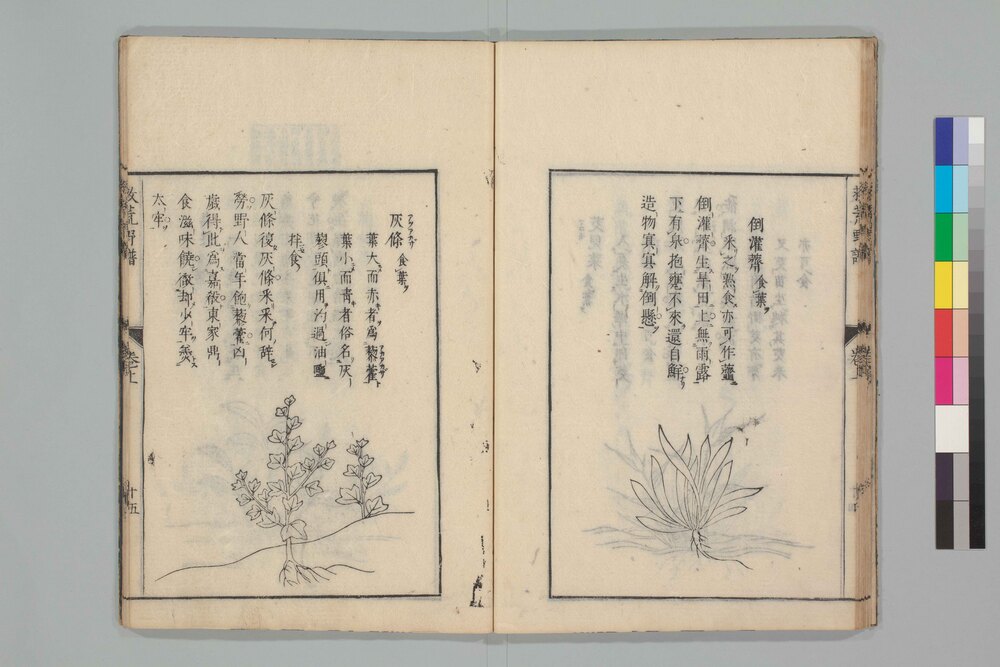 救荒野譜
卷上
倒灌薺 食葉
采之熟食亦可作虀
倒灌薺生旱田上無雨露
下有泉抱甕不來還自鮮
造物冥冥解倒懸
灰條 食葉
葉大而赤者爲藜藿
葉小而靑者俗名灰
藜頭俱用汋過油鹽
拌食
灰條復灰條采采何辭
勞野人當年飽藜藿凶
歲得此爲嘉殽東家鼎
食滋味饒徹却少牢羨
太牢
救荒野譜
卷上
十五